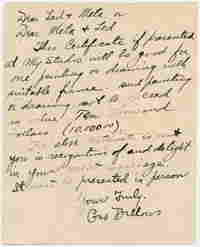 Dear Ted & Meta or
Dear Meta & Ted
This Certificate if presented
at My Studio will be good for
one painting or drawing with
suitable frame and painting
or drawing not to exceed
in value Ten
Dollars (10,000)
else
you in recognition of and delight
in your
is presented in person
Yours Truly,